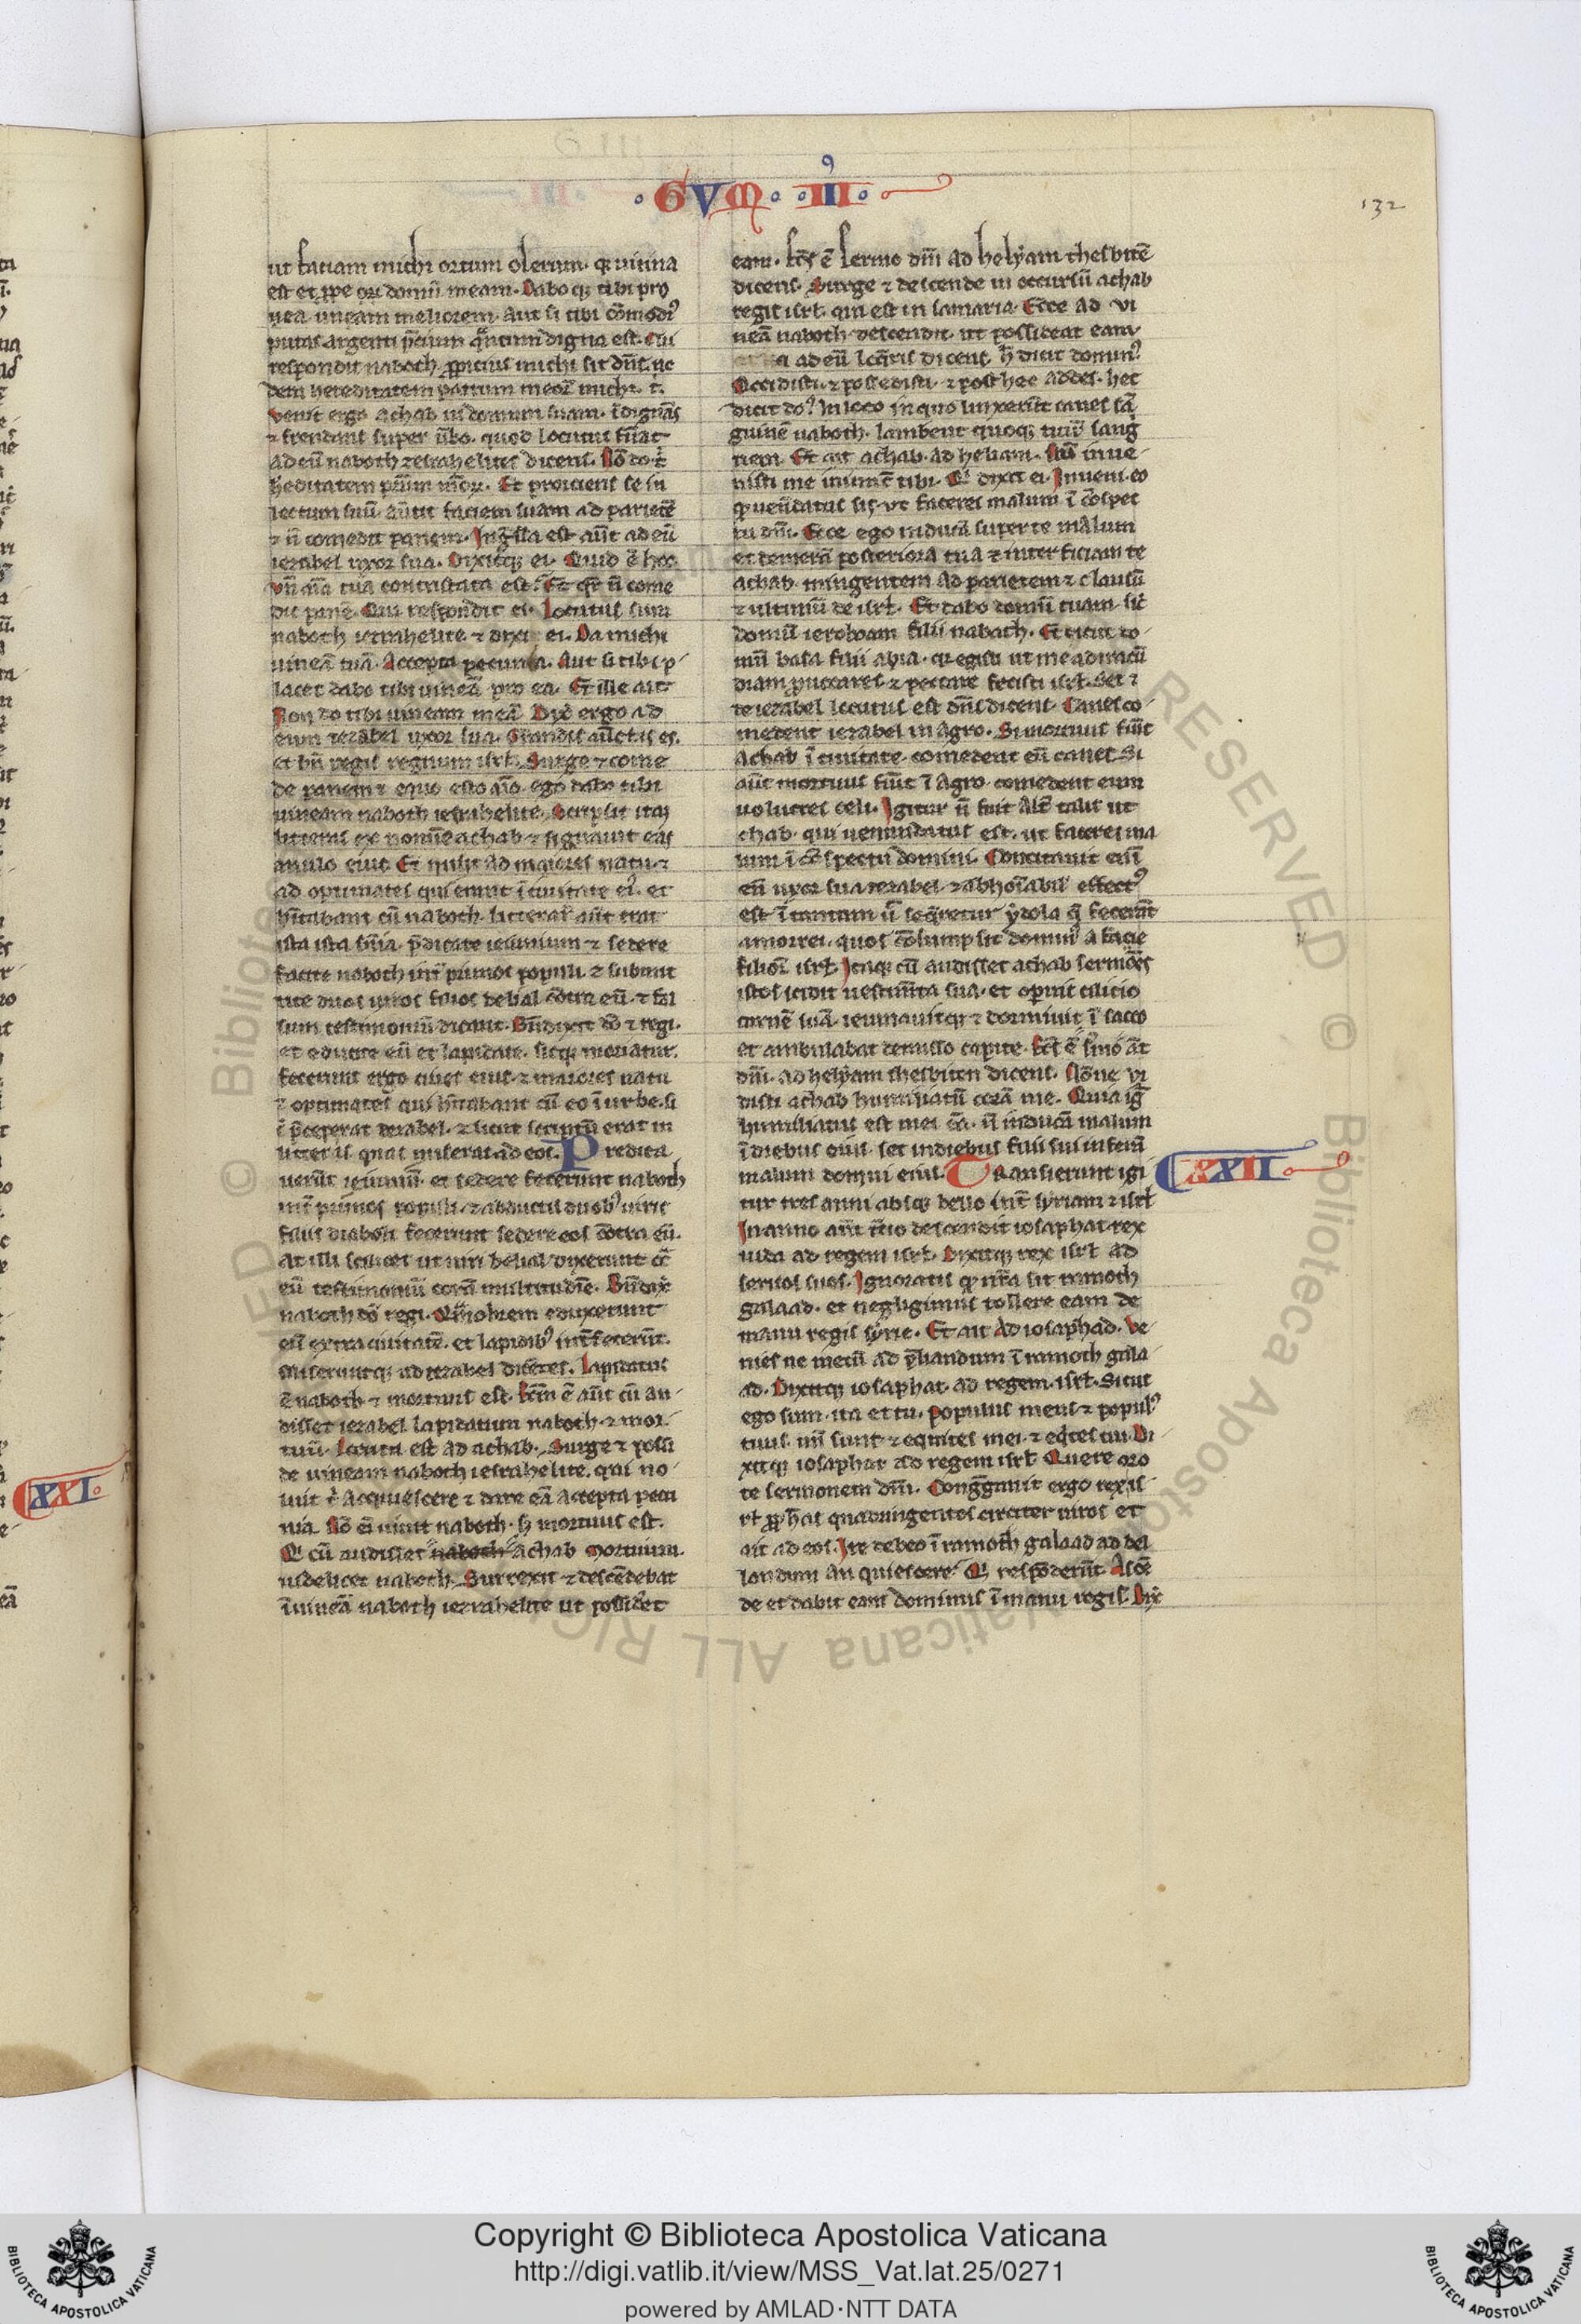 · GVM · · III ·
132
ut faciam michi ortum olerum· q̄ uicina
est et ꝓpe oꝝ domū meam· Dabo qꝫ tibi pro
uea uineam meliorem· Aut si tibi cōmodiꝰ
putas argenti p̄cium q̄ntum digna est· Cui
respondit naboth· ꝓpicius michi sit dn̄s ne
dem hereditatem patrum meoꝝ michi· t·
Venit ergo achab in domum suam· īdignās
⁊ frendens super ūbo· quod locutus fūat
ad eū naboth iezrahelites dicens· Nō do t̄
h̄editatem pr̄um m̄oꝝ· Et proiciens se in
lectum suū· aūtit faciem suam ad parietē
⁊ n̄ comedit panem· Ing̃ssa est aūt ad eū
iezabel uxor sua· Dixitqꝫ ei· Quid ē hoc
Vn̄ aīa tua contristata est· Et q̄r n̄ come
dit panē· Qui respondit ei· Locutus sum
naboth iezrahelite ⁊ dixi ei· Da michi
uineā tuā· Accepta pecunia· Aut si tibi p
lacet dabo tibi uineā pro ea· Et ille ait
Non do tibi uineam meā Dix̄ ergo ad
eum iezabel uxor sua· Grandis auct̄is es·
et bn̄ regis regnum isrl̄· Surge ⁊ come
de panem ⁊ equo esto aīo· ego dabo tibi
uineam naboth iesrahelite· Scripsit itaqꝫ
litteras ex nomīe achab ⁊ signauit eas
anulo eius Et misit ad maiores natu ⁊
ad optimates qui erant ī ciuitate eiꝰ· et
hītabant cū naboth· litterar̄ aūt erat
ista ista sn̄ia· p̄dicate ieiunium ⁊ sedere
facite naboth int̄ primos populi· ⁊ submit
tite duos uiros filios belial cōtra eū· ⁊ fal
sum testimoniū dicant· Bn̄dixit dō ⁊ regi·
et educite eū et lapidate· sicqꝫ moriatur·
fecerunt ergo ciues eius· ⁊ maiores natu
⁊ optimates qui hītabant cū eo ī urbe· si
ī p̄ceperat iezabel· ⁊ sicut scriptū erat in
litteris quas miserat ad eos· Predica
uerūt ieiuniū· et sedere fecerunt naboth
int̄ primos populi· ⁊ adductis duobꝰ uiris
filiis diaboli fecerunt sedere eos cōtra eū·
At illi scilicet ut uiri belial dixerunt cō
eū testimoniū corā multitudīe· Bn̄dix̄
naboth dō regi· Q̄mobrem eduxerunt
eū extra ciuitatē· et lapidibꝰ int̄fecerūt·
Miseruntqꝫ ad iezabel dicētes· Lapidatus
ē naboth ⁊ mortuus est· fc̄m ē aūt cū au
disset iezabel lapidatum naboth ⁊ mor
tuū· Locuta est ad achab· Surge ⁊ possi
de uineam naboth iesrahelite· qui no
luit t̄ Acquiescere ⁊ dare eā Accepta pecu
nia· Nō ei uiuit naboth· sꝫ mortuus est·
Q cū audisset naboth achab mortuum·
uidelicet naboth· Surrexit ⁊ descēdebat
ī uineā naboth iezrahelite ut possidet
eam· fc̄s ē sermo dm̄ ad helyam thesbitē
dicens· Surge ⁊ descende in occursū achab
regis isrl̄· qui est in samaria Ecce ad vi
neā naboth descendit· ut possideat eam
a ad eū loq̄ris dicens h̄ dicit dominꝰ
Occidisti· ⁊ possedisti· ⁊ post hec addes· hec
dicit doꝰ In loco in quo linxerūt canes sā
guinē naboth· lambent quoqꝫ tuū sang
nem· Et ait achab ad heliam· Nū inue
nisti me inimic̄ tibi· Q dixit ei· Inueni eo
q uenūdatus sis· ut faceres malum ī cōspec
tu dm̄· Ecce ego inducā super te malum
et demetā posteriora tua ⁊ interficiam te
achab mingentem ad parietem ⁊ clausū
⁊ ultimū de isrl̄· Et dabo domū tuam sic̄
domū ieroboam filii nabath· Et sicut do
mū basa filii ahia· q̄ egisti ut me ad iracū
diam ꝓuocares ⁊ peccare fecisti isrl̄· Set ⁊
te iezabel locutus est dn̄s dicens· Canes co
medent iezabel in agro· Si mortuus fūit
Achab ī ciuitate· comedent eū canes Si
aūt mortuus fūit ī Agro· comedent eum
uolucres celi· Igitur n̄ fuit Alt̄ talis ut
chab· qui uenundatus est· ut faceret ma
lum ī cōspectu domini· Concitauit enī
eū uxor sua iezabel· ⁊ abhoīabil effectꝰ
est ī tantum ut seq̄retur ydola q̄ fecerāt
amorrei· quos cōsumpsit dominꝰ a facie
filioꝝ isrl̄· Itaqꝫ cū audisset achab sermōes
istos scidit uestimīta sua· et operuit cilicio
carnē suā· ieiunauitqꝫ ⁊ dormiuit ī sacco
et ambulabat demisso capite· fc̄s ē s̄mo āt
dm̄· ad helyam thesbiten dicens· Nōne vi
disti achab humiliatū corā me· Quia iḡ
humiliatus est mei cā· n̄ inducā malum
ī diebus eius· set in diebus filii sui inferā
malum domui eius· Transierunt igi
tur tres anni absqꝫ bello int̄ syriam ⁊ isrl̄
In anno aūt t̄tio descendit iosaphat rex
iuda ad regem isrl̄· Dixitqꝫ rex isrl̄ ad
seruos suos· Ignoratis q̄ nr̄a sit ramoth
galaad· et negligimus tollere eam de
manu regis syrie· Et ait Ad iosaphad· Ve
nies ne mecū ad p̄liandum ī ramoth gala
ad· Dixitqꝫ iosaphat· ad regem· isrl̄· Sicut
ego sum· ita et tu· populus meus ⁊ populꝰ
tuus· unū sunt ⁊ equites mei· ⁊ eq̄tes tui· Di
xitqꝫ iosaphat ad regem isrl̄ Quere oro
te sermonem dm̄· Congg̃auit ergo rex is
rl̄ ꝓphās quadringentos circiter uiros et
ait ad eos· Ire debeo ī ramoth galaad ad bel
landum an quiescere· Q respōderūt Ascē
de et dabit eam dominus ī manu regis· Dix̄
XXII
XXI·
Copyright © Biblioteca Apostolica Vaticana
http://digi.vatlib.it/view/MSS_Vat.lat.25/0271
powered by AMLAD·NTT DATA
BIBLIOTECA APOSTOLICA VATICANA
BIBLIOTECA APOSTOLICA VATICANA